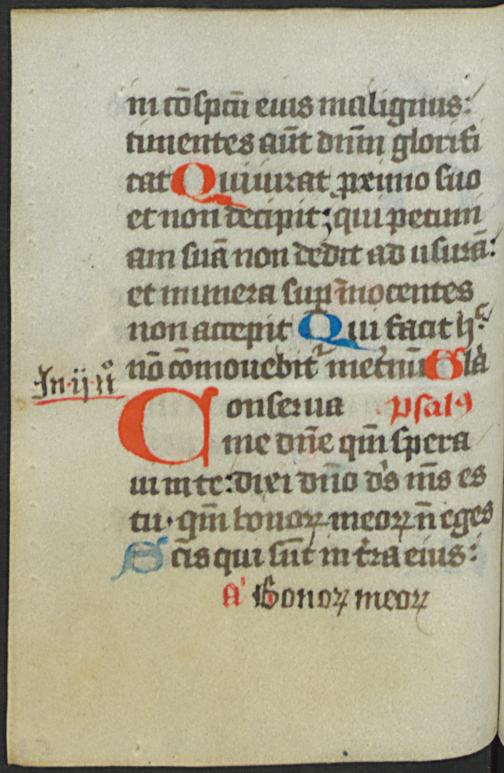 in cōspcū eius malignus:
timentes aūt dnm̄ glorifi
cat Qui iurat ꝓximo suo
et non decipit; qui pecuni
am suā non dedit ad usurā:
et munera sup īnocentes
non accepit Qui facit hͨ
nō cōmouebit᷑ inet̄nū Gl̄a
In ij nͦ
Conserua psalꝯ
me dn̄e qm̄ spera
ui in te: dixi dn̄o ds̄ ms̄ es
tu· qm̄ bonoꝝ meoꝝ n̄ eges
Sc̄is qui sūt in t̄ra eius:
A' Bonoꝝ meoꝝ